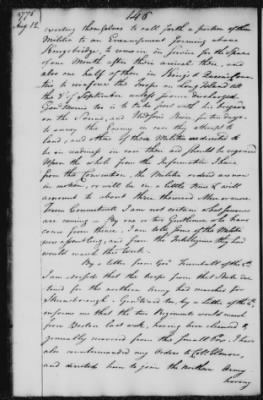 1776
Aug 12
146
exerting themselves to call forth a portion of their
Militia to an Encampment forming above
Kingsbridge, to remain in service for the space
of one Month after their arrival there, and
also one half of them in Kings & Queens Coun-
ties to reinforce the Troops on Long Island till
the 1st of September unless sooner discharged
Genl Morris too is to take post with his brigade
on the Sound, and Hudsons River for ten days
to annoy the Enemy in case they attempt to
land, and others of their Militia
to be in readiness in case their aid should be required
Upon the whole from the Information I have
from the Convention, the Militia ordered are now
in motion, or will be in a little time &
amount to about three thousand
From Connecticut I am not certain what succours
are coming — By one or two Gentlemen who have
come from thence, I am told some of the Militia
were assembling, and from the Intelligence they had
would march this Week.
By a Letter from Govr Trumbull of the
I am advised that the troops from that State des-
tined for the northern Army had marched for
Skenesborough; Genl Ward too by a Letter of the
informs me that the two Regiments would march
from Boston last week, having been cleansed &
generally recovered from the small Pox; I have
also countermanded my Orders to Coll Elmore,
and directed him to join the northern Army
having